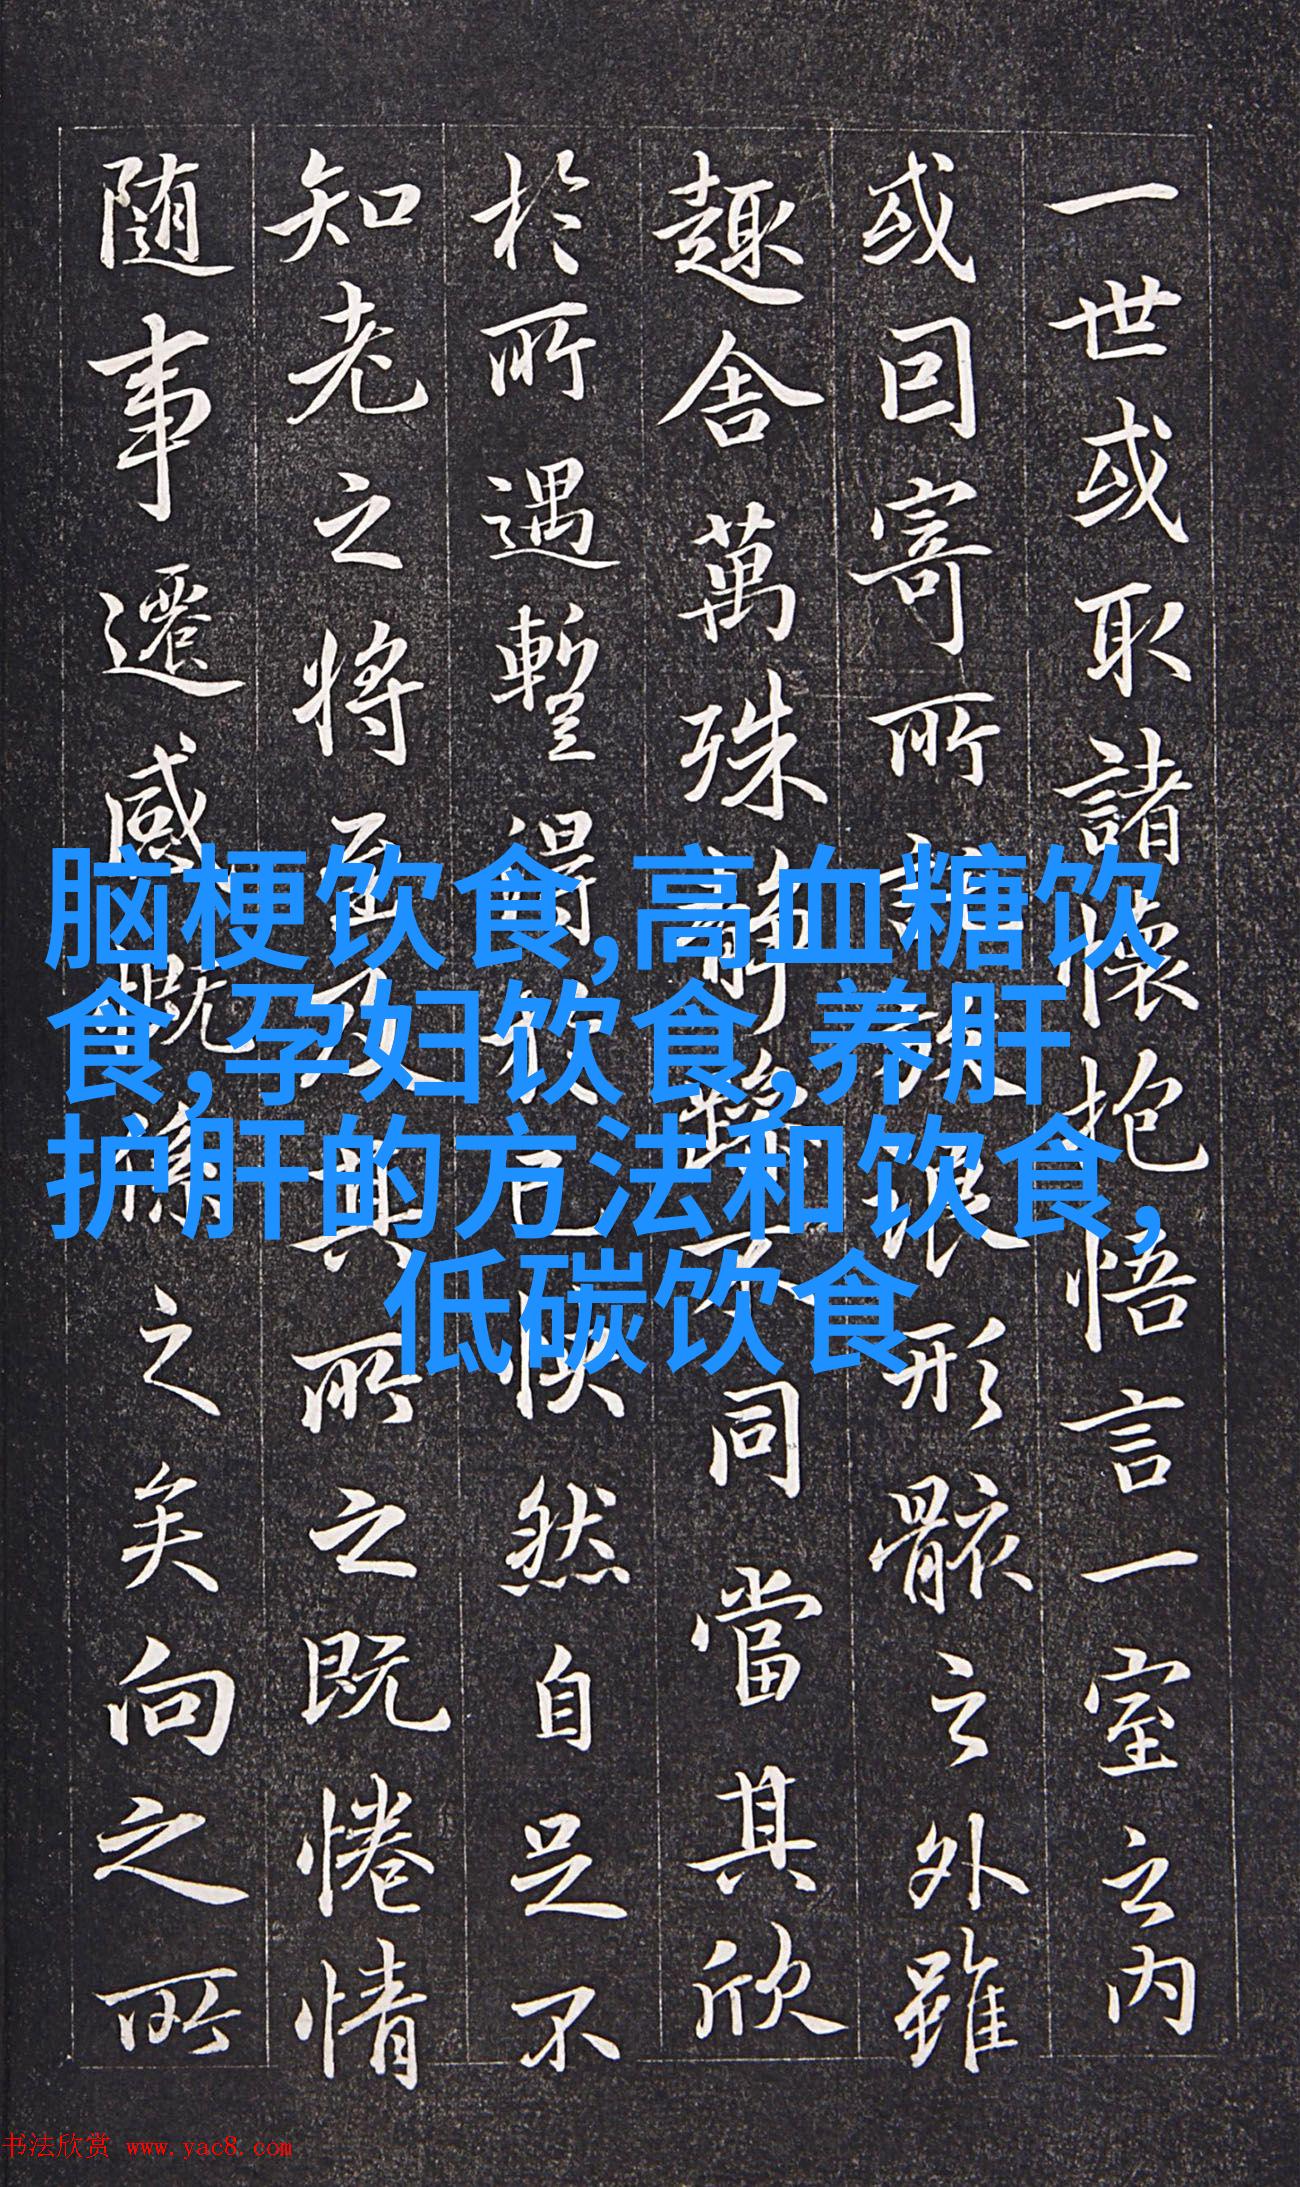 一世或取諸懷抱悟言一室之内
或囙寄所託放浪形骸之外雖
趣舍萬殊静躁不同當其欣
於所遇暫得於己快然自足不
知老之將至及其所之既惓情
随事遷感慨係之矣向之所
脑梗饮食,高血糖饮
食,孕妇饮食,养肝
护肝的方法和饮食,
低碳饮食
书法欣赏 www.yac8.com